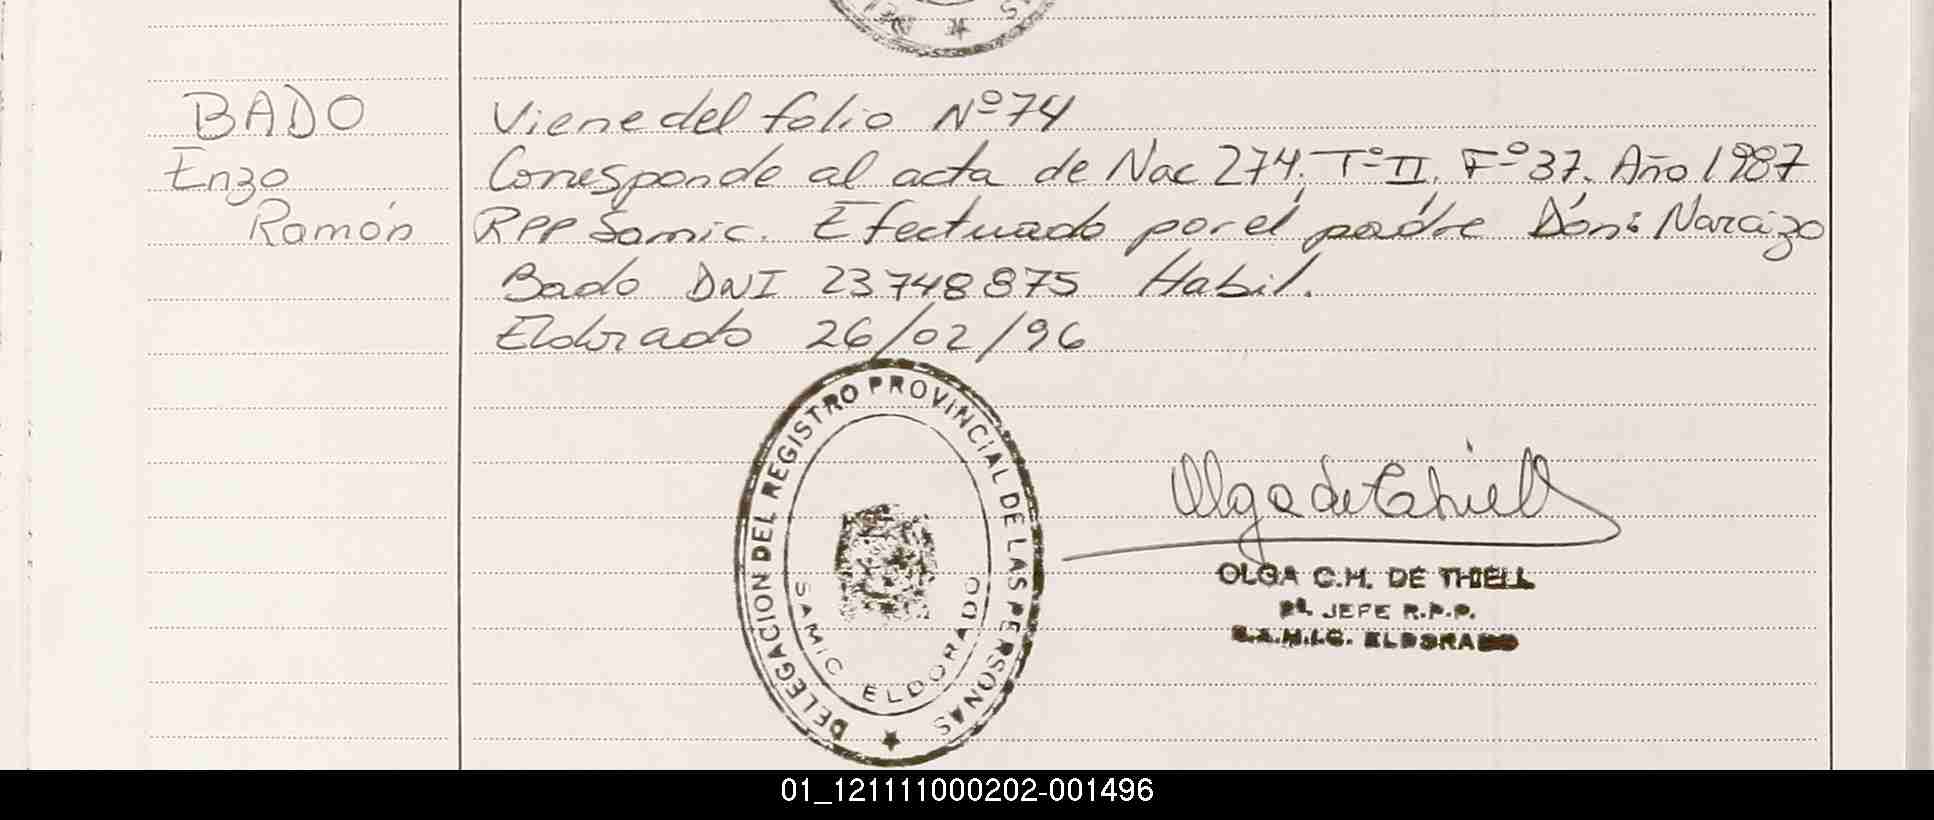 BADO
Enzo
Ramón
Viene del folio Nº 74
Corresponde al acta de Nac 274. Tº II. Fº 37. Año 1987
RPP Samic. Efectuado por el padre Dón: Narcizo
Bado DNI 23748875 Habil.
Eldorado 26/02/96
DELEGACION DEL REGISTRO PROVINCIAL DE LAS PERSONAS
SAMIC ELDORADO
Olga de Thiell
OLGA C.H. DE THIELL
JEFE R.P.P.
S.A.M.I.C. ELDORADO
01_121111000202-001496